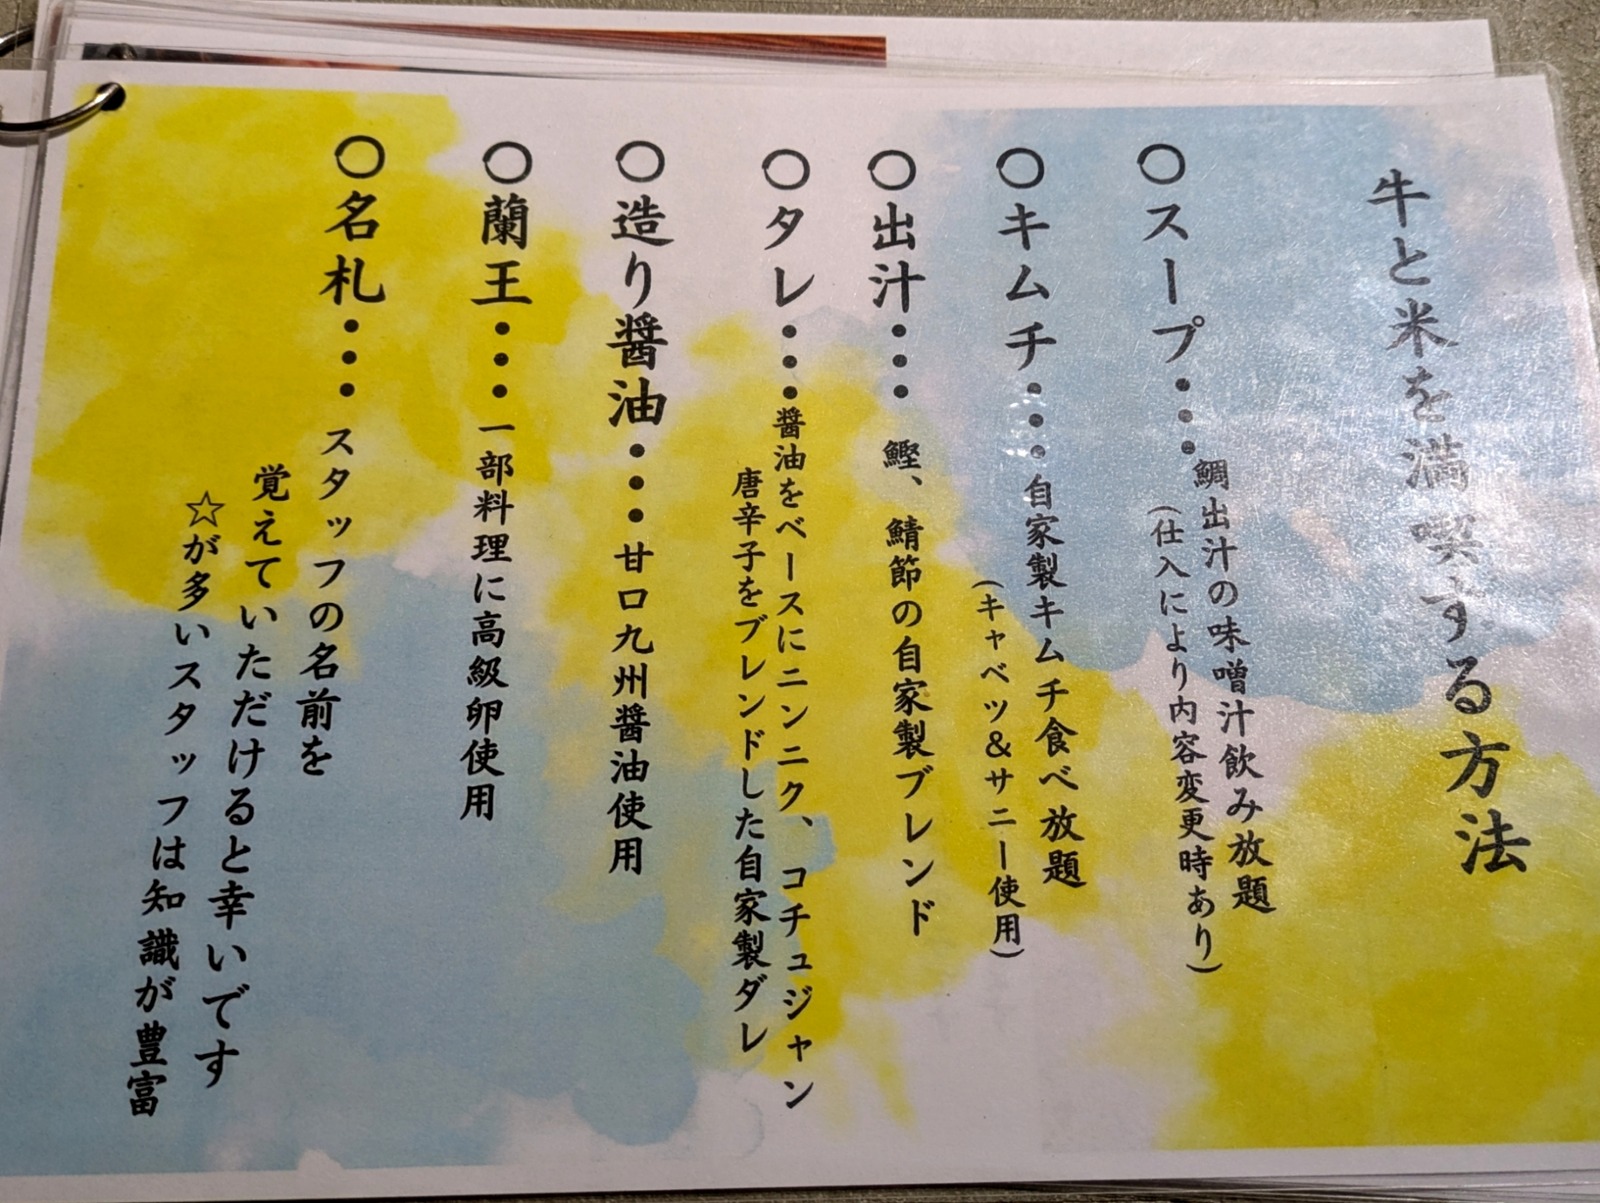 牛と米を満喫する方法
〇スープ・・・鯛出汁の味噌汁飲み放題
(仕入により内容変更時あり)
〇キムチ・・・自家製キムチ食べ放題
(キャベツ&サニー使用)
〇出汁・・・ 鰹、鯖節の自家製ブレンド
〇タレ・・・醤油をベースにニンニク、コチュジャン
唐辛子をブレンドした自家製ダレ
〇造り醤油・・・甘口九州醤油使用
〇蘭王・・・一部料理に高級卵使用
〇名札・・・スタッフの名前を
覚えていただけると幸いです
☆が多いスタッフは知識が豊富